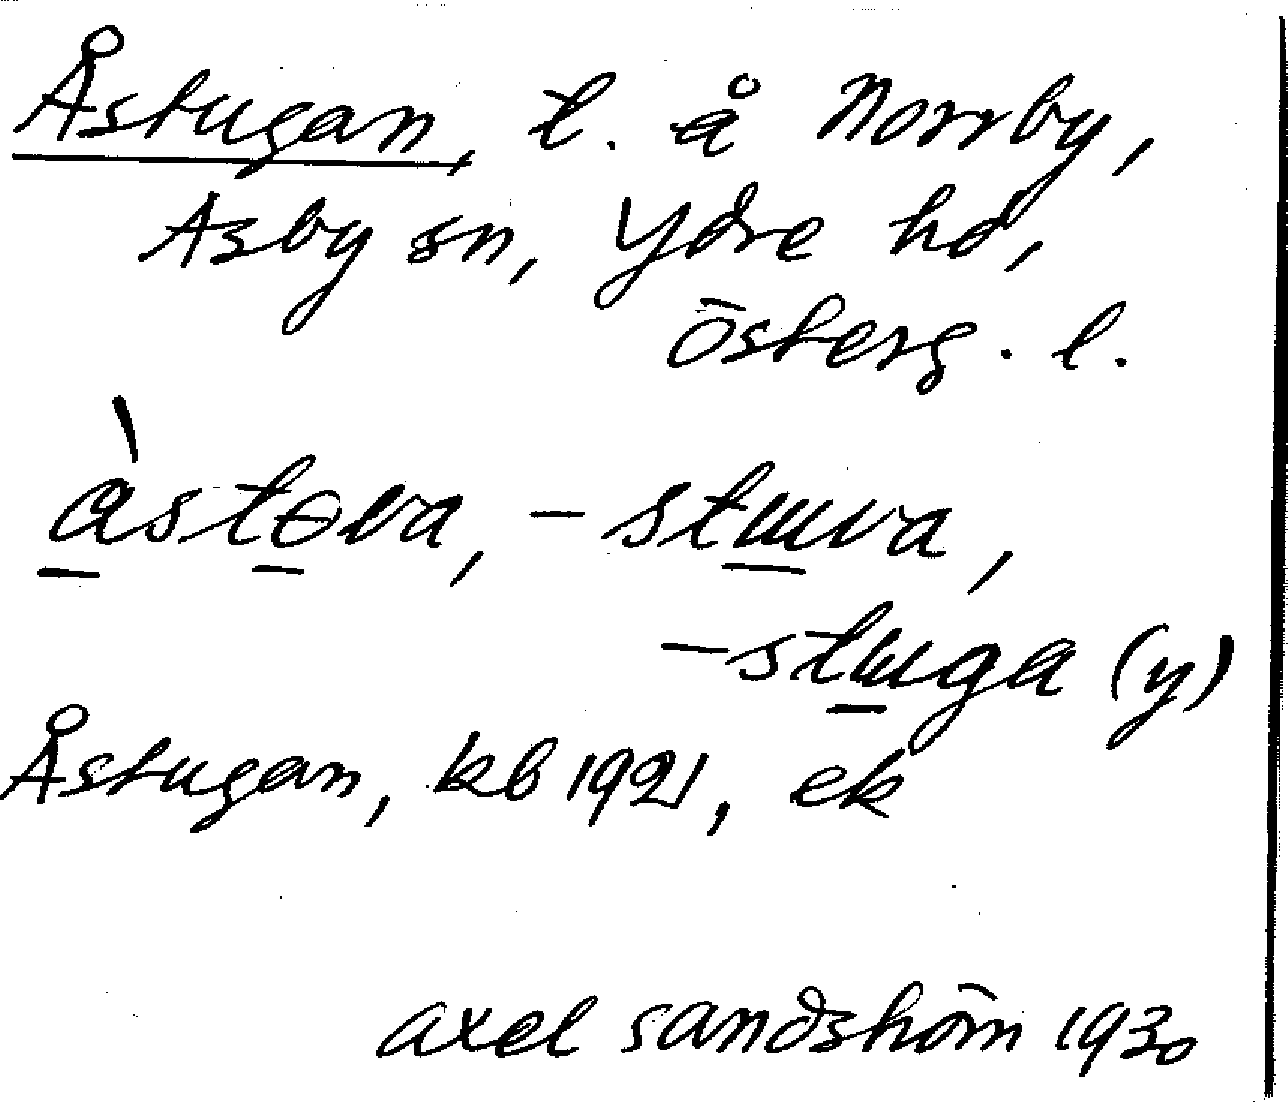 Åstugan, t. å Norrby,
Asby sn, Ydre hd,
Österg. l.
àstɵva, -stɯva,
-stɯga (y)
Åstugan, kb 1921, ek
axel sandström 1930